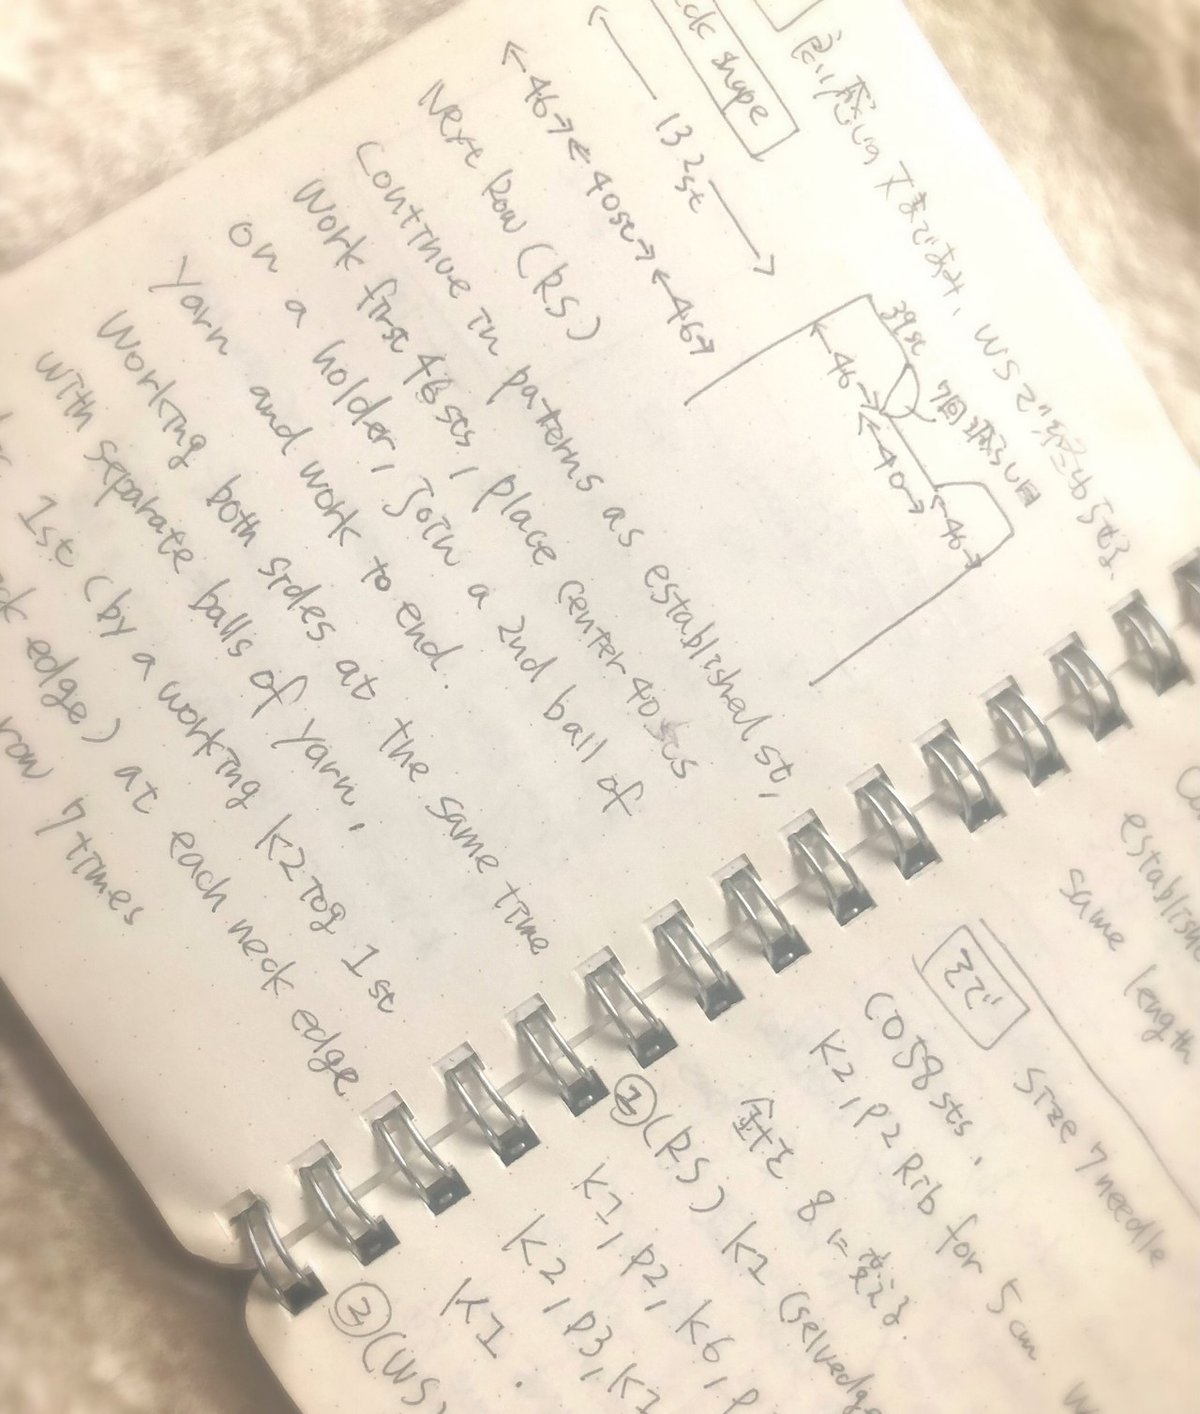 長い感じのママまであみ、WSで終わらせる
ck shape
← 132st →
←46→←40st→←46→
39st
7回減らし目
←46→←40→←46→
Next Row (RS)
Continue in patterns as established st,
Work first 46 sts, place center 40 sts
on a holder, Join a 2nd ball of
yarn and work to end.
Working both sides at the same time
with separate balls of yarn,
1st (by a working k2 tog 1st
edge) at each neck edge
row 7 times
establishe
same length
そで
size 7 needle
CO 58 sts.
K2, P2 Rib for 5cm
針を8に変える
① (RS) K2 (selvedge
K1, P2, K6, P
K2, P3, K1
K1.
② (WS)